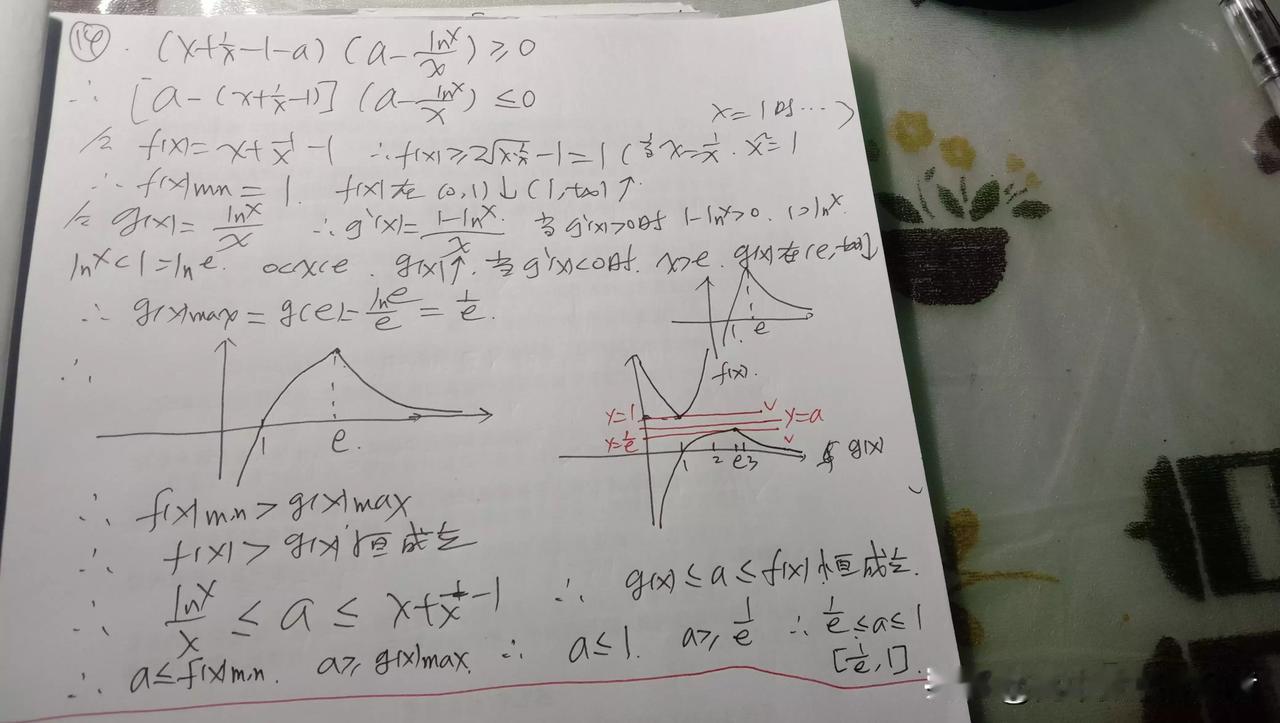 ⑭. (x+1/x-1-a) (a-lnx/x) ≥0
∴ [a-(x+1/x-1)] (a-lnx/x) ≤0
x=1时…>
令 f(x)=x+1/x-1 ∴f(x)≥2√x·1/x-1=1 (当x=1/x. x²=1
∴ f(x)min=1 f(x)在 (0,1)↓ (1,+∞)↑.
令 g(x)=lnx/x ∴g'(x)=1-lnx/x 当g'(x)>0时 1-lnx>0. 1>lnx.
lnx<1=lne. 0<x<e. g(x)↑. 当g'(x)<0时. x>e. g(x)在(e,+∞)↓
∴ g(x)max=g(e)=lne/e=1/e.
1 e
∴
1 e.
f(x).
y=1 y=a
y=1/e
1 2 e 3 g(x)
∴ f(x)min>g(x)max
∴ f(x)>g(x)恒成立
∴ lnx/x ≤ a ≤ x+1/x-1 ∴ g(x)≤a≤f(x)恒成立.
∴ a≤f(x)min. a≥g(x)max. ∴ a≤1. a≥1/e ∴1/e≤a≤1
[1/e,1].